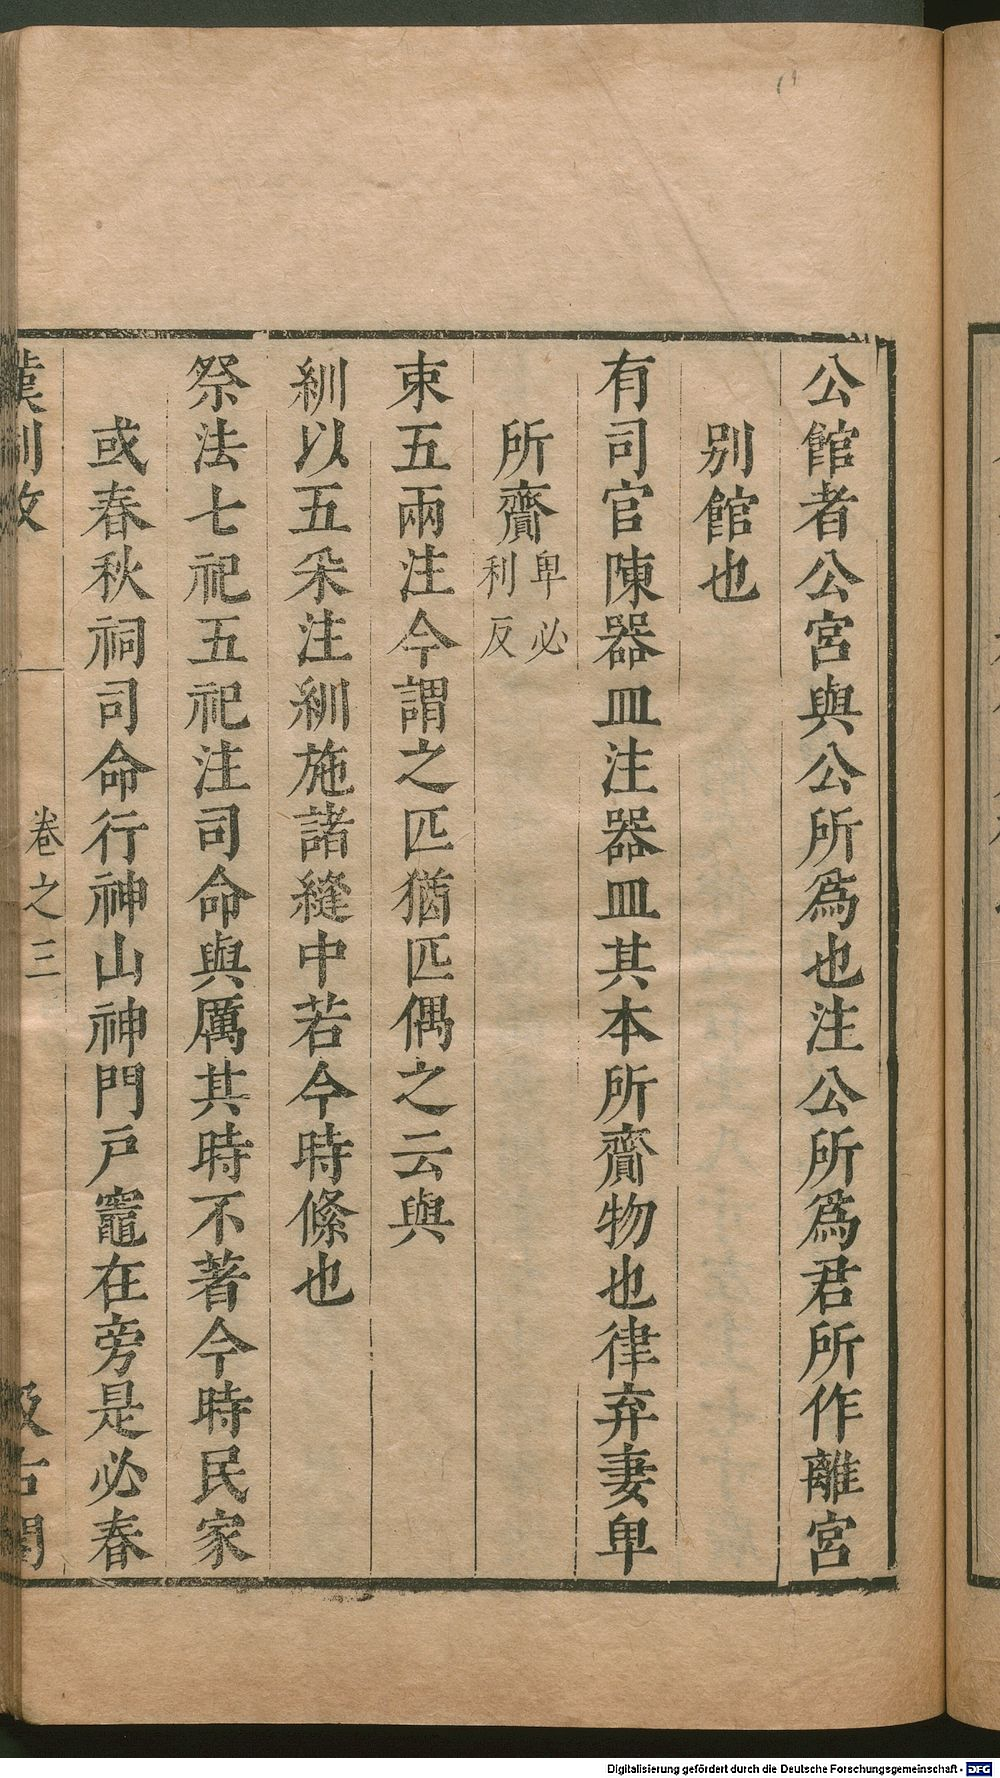 公館者公宮與公所爲也注公所爲君所作離宮
別館也
有司官陳器皿注器皿其本所齎物也律弃妻卑
所齎卑必利反
束五兩注今謂之匹猶匹偶之云與
紃以五采注紃施諸縫中若今時絛也
祭法七祀五祀注司命與厲其時不著今時民家
或春秋祠司命行神山神門戶竈在旁是必春
漢制攷
卷之三
汲古閣
Digitalisierung gefördert durch die Deutsche Forschungsgemeinschaft - DFG